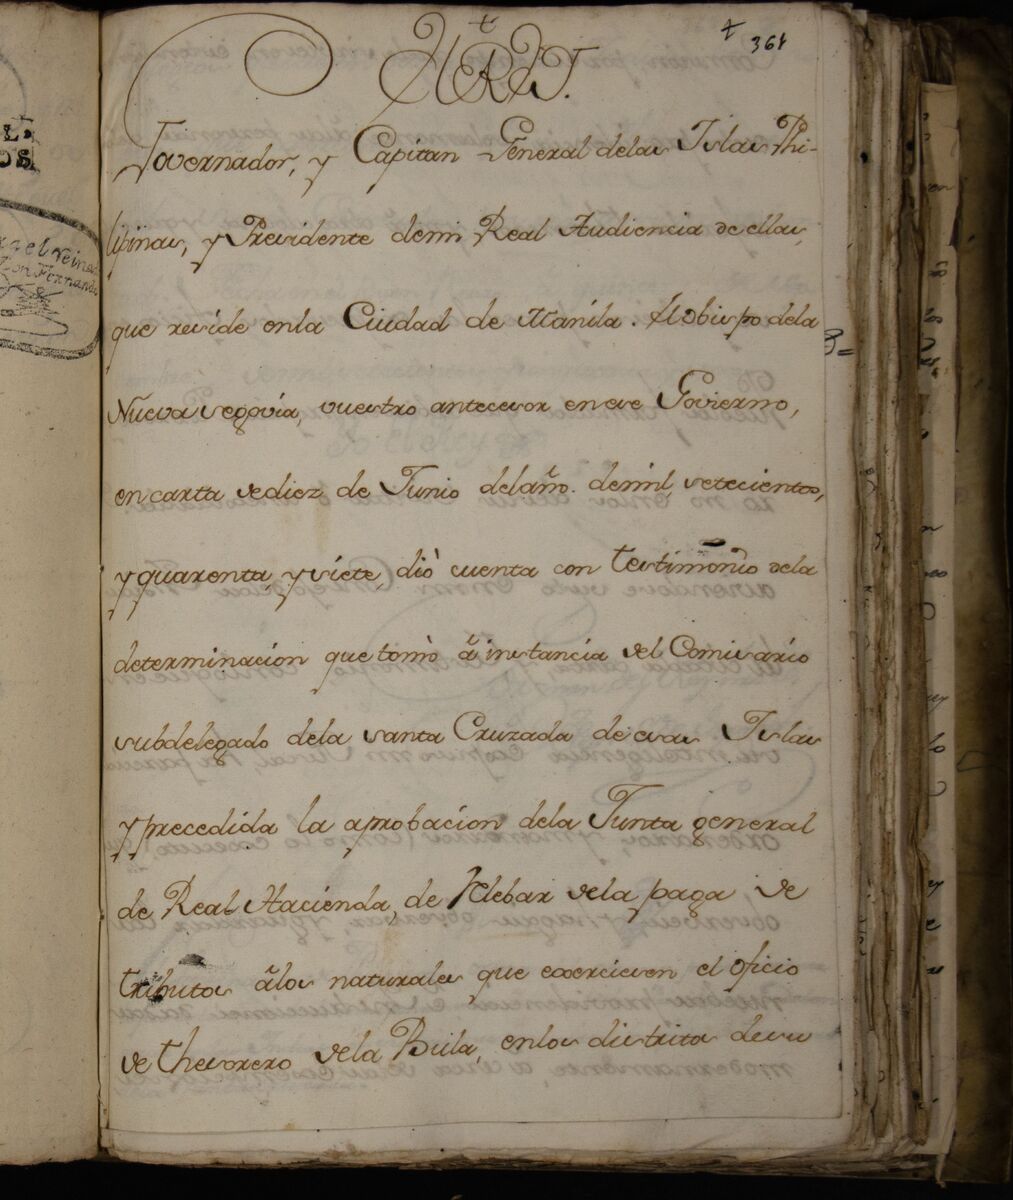 +
364
El Rey.
Governador, y Capitan General delas Islas Phi-
lipinas, y Presidente demi Real Audiencia de ellas,
que reside enla Ciudad de Manila. el obispo dela
Nueva segovia, vuestro antecesor en ese Govierno,
en carta de diez de Junio del año. demil, setecientos,
y quarenta, y siete, diò cuenta con testimonio dela
determinacion que tomò â instancia del Comisario
subdelegado dela santa Cruzada de esas Islas
y precedida la aprobacion dela Junta general
de Real Hacienda, de relebar dela paga de
tributos âlos naturales que exerciesen el oficio
de thesorero dela Bula, enlos distritos de su